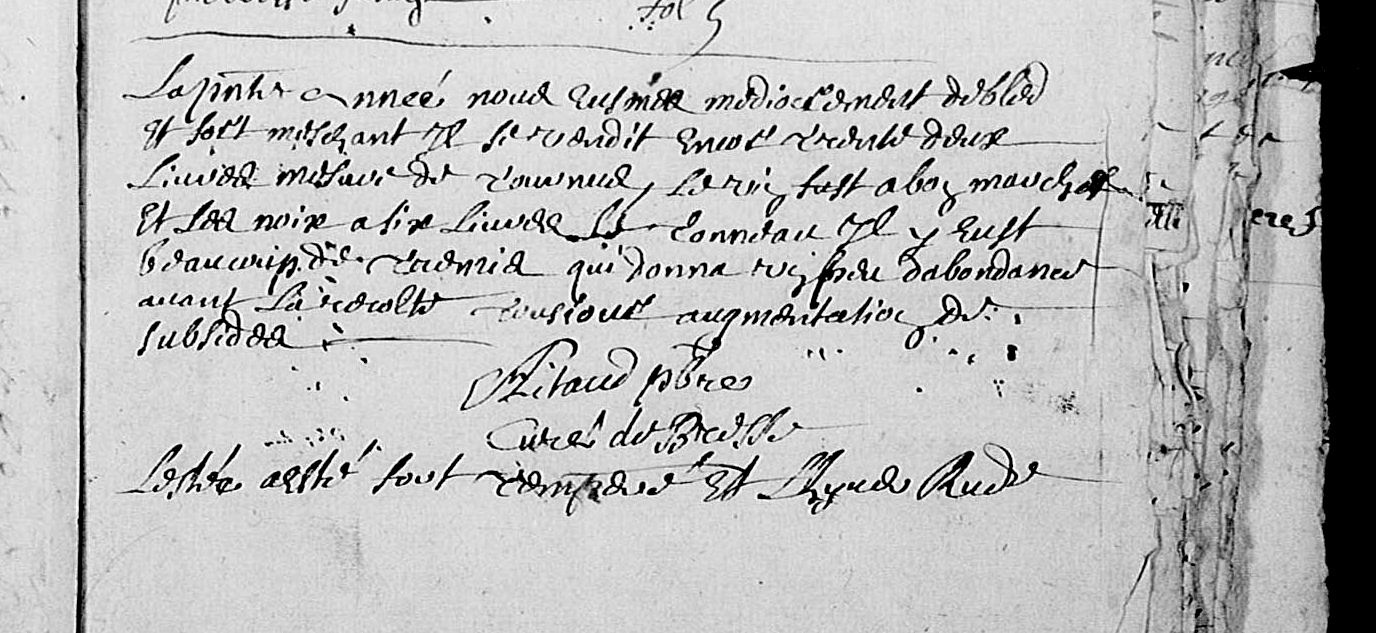 fol
La pnte Anneé nous Eusmes mediocrement de bled
Et fort meschant Il se vendit Encor trente deux
Livres mesure de tournus, Le vin fust a bon marché
Et Les noix a six Livres Le tonneau Il y Eust
beaucoup de tremis qui donna un peu dabondance
avant La recolte tousiours augmentation de
subsides
Ritaud pbre
Curé de Bresse
Lesté a esté fort temperé Et Lhyver Rude